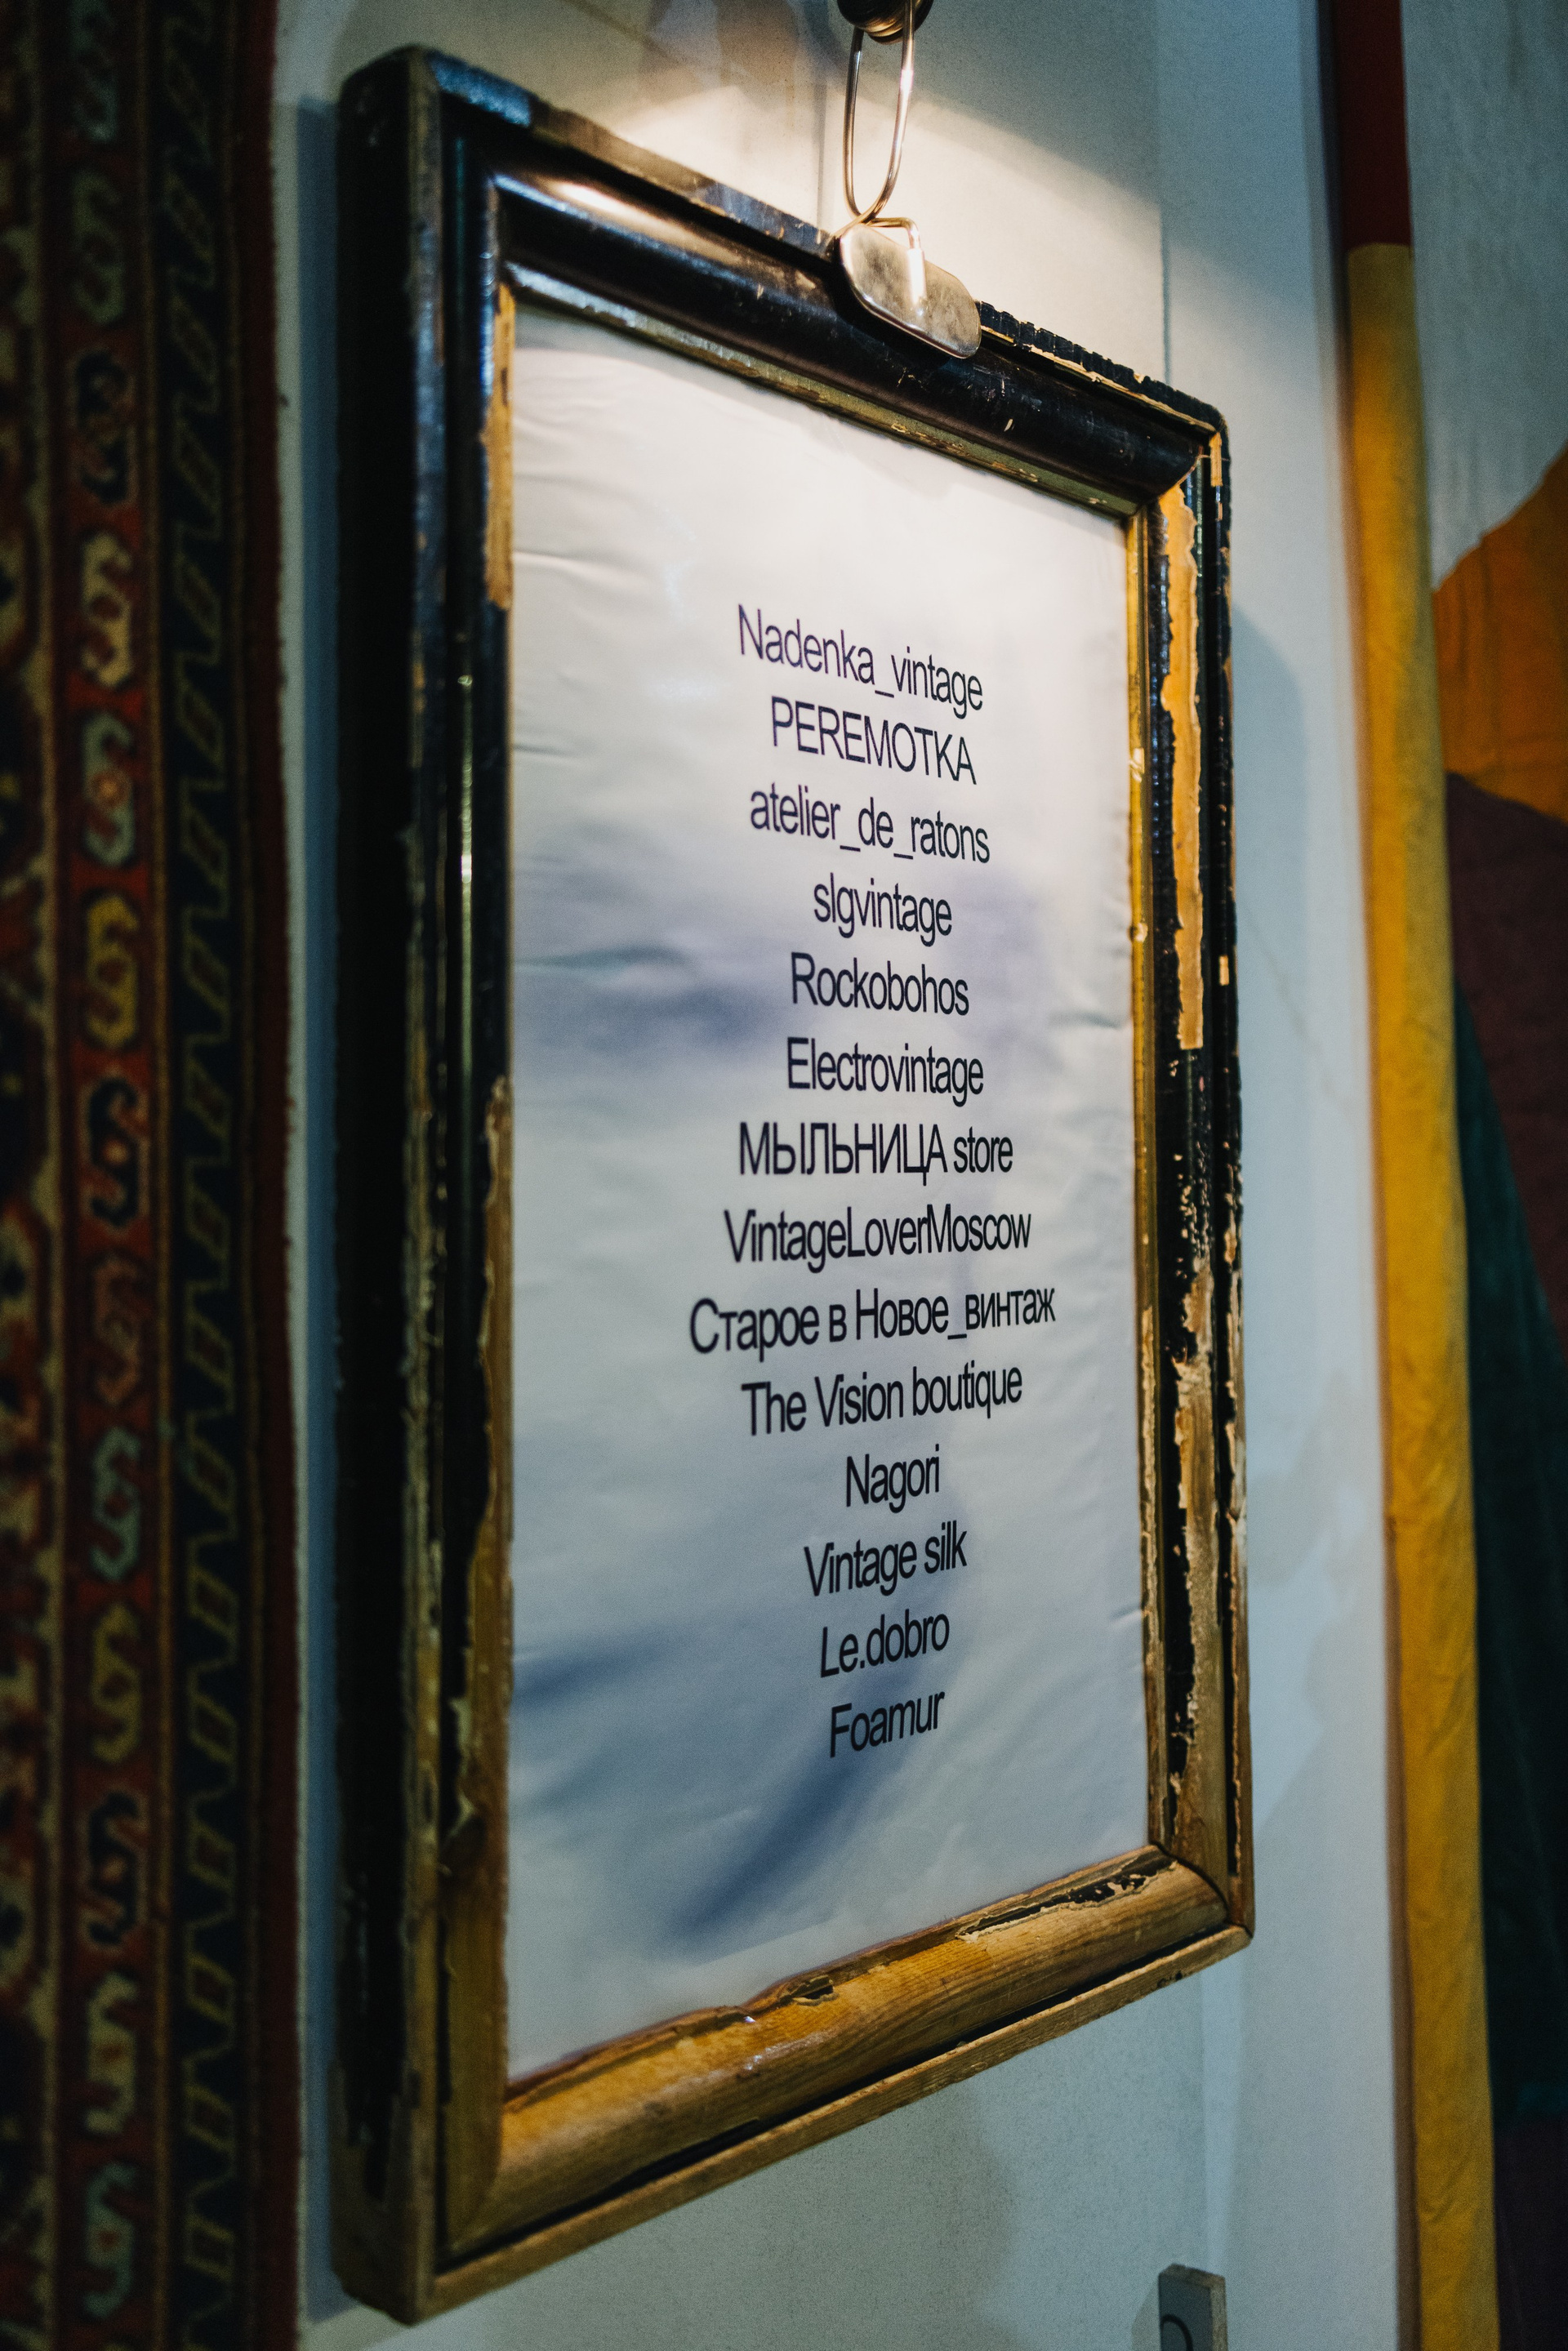 Nadenka_vintage
PEREMOTKA
atelier_de_ratons
slgvintage
Rockobohos
Electrovintage
МЫЛЬНИЦА store
VintageLoverMoscow
Старое в Новое_винтаж
The Vision boutique
Nagori
Vintage silk
Le.dobro
Foamur